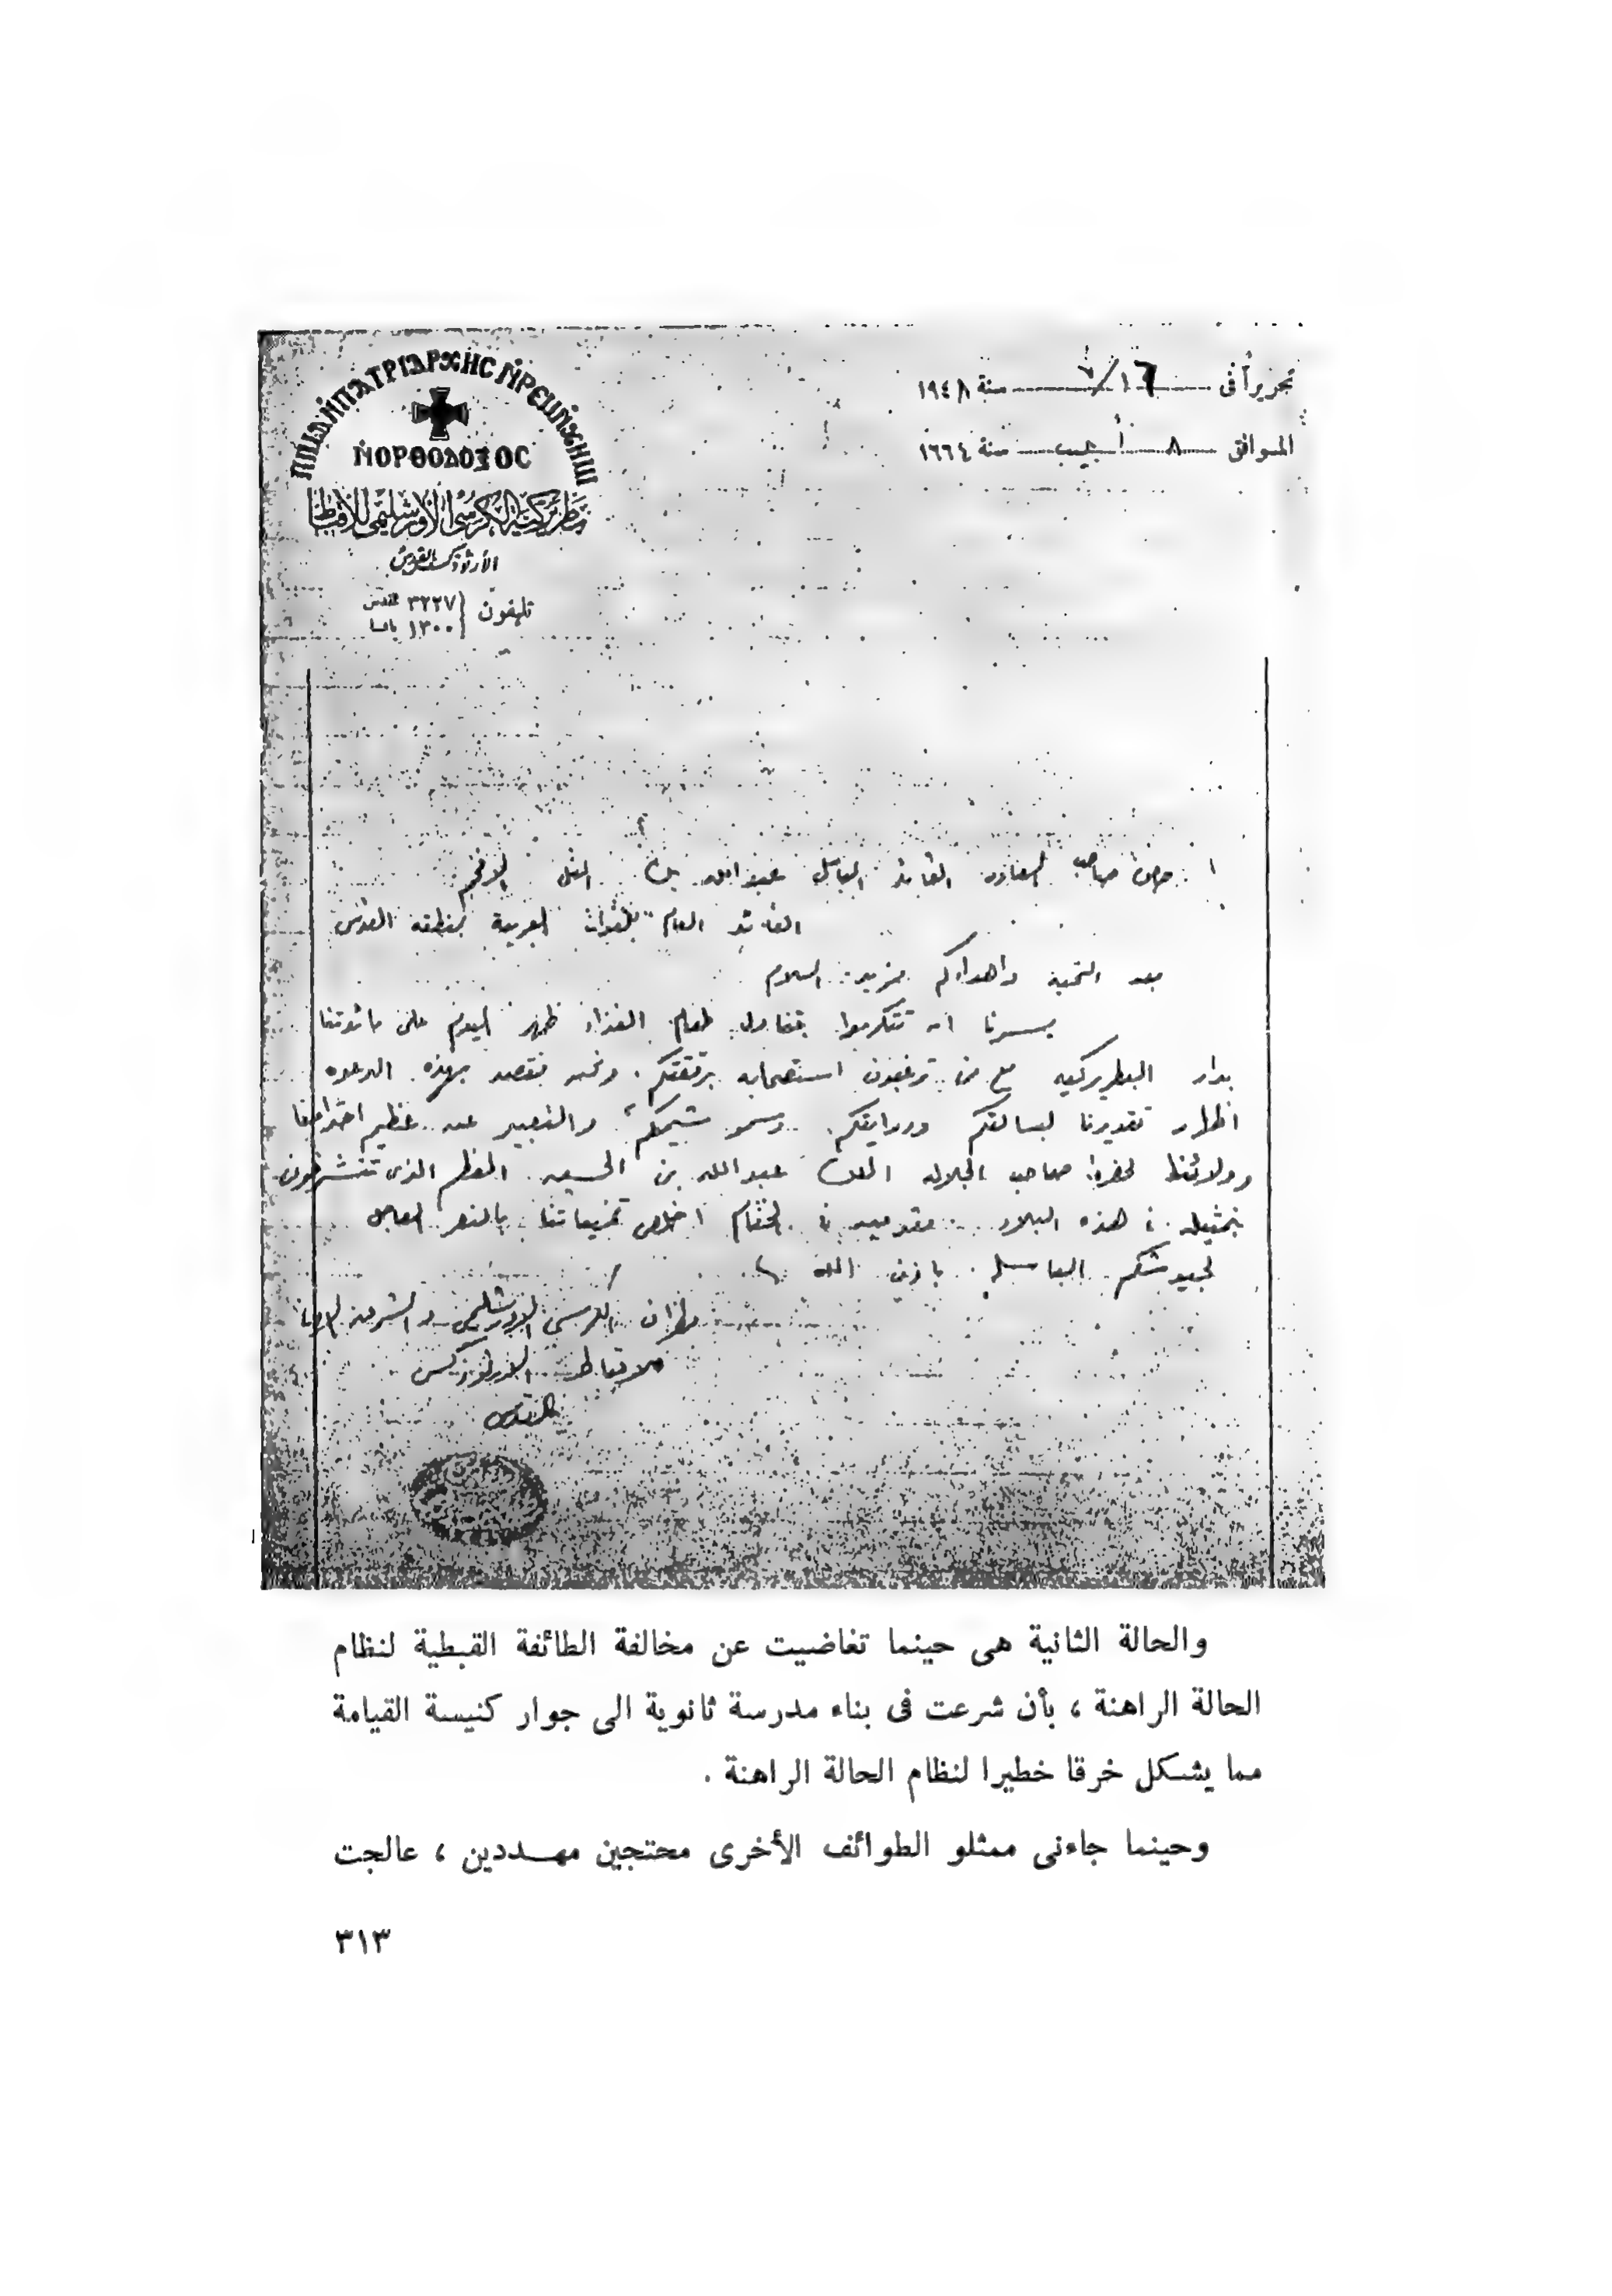 تحريراً فى ١٦/٧ سنة ١٩٤٨
الموافق ٨ أبيب سنة ١٦٦٤
ⲚⲞⲢⲐⲞⲆⲞⲜⲞⲤ
بطريركية الكرسى الأورشليمى للأقباط
الأرثوذكس بالقدس
تليفون ٣٢٢٧ القدس
١٣٠٠ يافا
حضرة صاحب السعادة القائد الباسل عبد الله بك التل الافخم
القائد العام للقوات العربية بمنطقة القدس
بعد التحية واهدائكم مزيد السلام
يسرنا ان تتكرموا بتناول طعام الغذاء ظهر اليوم على مائدتنا
بدار البطريركيه مع من ترغبون استصحابه برفقتكم. ونحن نقصد بهذه الدعوه
اظهار تقديرنا لبسالتكم ودرايتكم. وسمو شيمكم، والتعبير عن عظيم احترامنا
وولائنا لحضرة صاحب الجلاله الملك عبد الله بن الحسين المعظم الذى تتشرفون
بتمثيله فى هذه البلاد. مقدمين فى الختام اخلص تمنياتنا بالنصر العاجل
لجيوشكم الباسله. باذن الله
مطران الكرسى الاورشليمى والشرق
للاقباط الارثوذكس
بالقدس
والحالة الثانية هى حينما تغاضيت عن مخالفة الطائفة القبطية لنظام
الحالة الراهنة ، بأن شرعت فى بناء مدرسة ثانوية الى جوار كنيسة القيامة
مما يشكل خرقا خطيرا لنظام الحالة الراهنة .
وحينما جاءنى ممثلو الطوائف الأخرى محتجين مهـددين ، عالجت
٣١٣